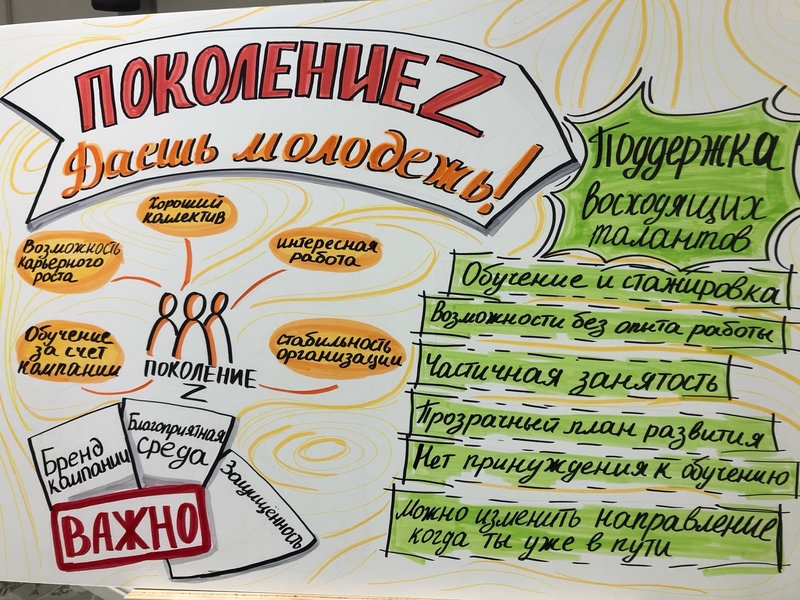 ПОКОЛЕНИЕ Z
Даешь молодежь!
Хороший
коллектив
Возможность
карьерного
роста
интересная
работа
Обучение
за счет
компании
стабильность
организации
ПОКОЛЕНИЕ
Z
Бренд
компании
Благоприятная
среда
Защищённость
ВАЖНО
Поддержка
восходящих
талантов
Обучение и стажировка
Возможности без опыта работы
Частичная занятость
Прозрачный план развития
Нет принуждения к обучению
Можно изменить направление
когда ты уже в пути